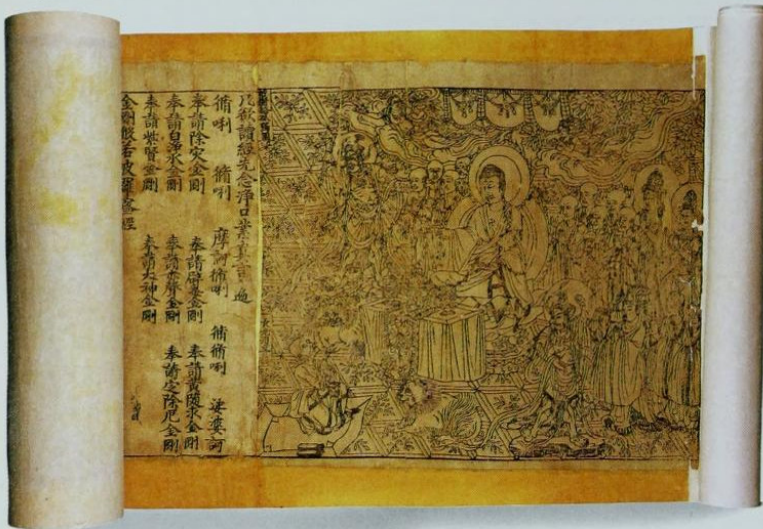 凡欲讀經先念淨口業真言一遍
脩唎　脩唎　摩訶脩唎　脩脩唎　娑婆訶
奉請除灾金剛　奉請辟毒金剛　奉請黃随求金剛
奉請白淨水金剛　奉請赤聲金剛　奉請定除厄金剛
奉請紫賢金剛　奉請大神金剛
金剛般若波羅蜜經